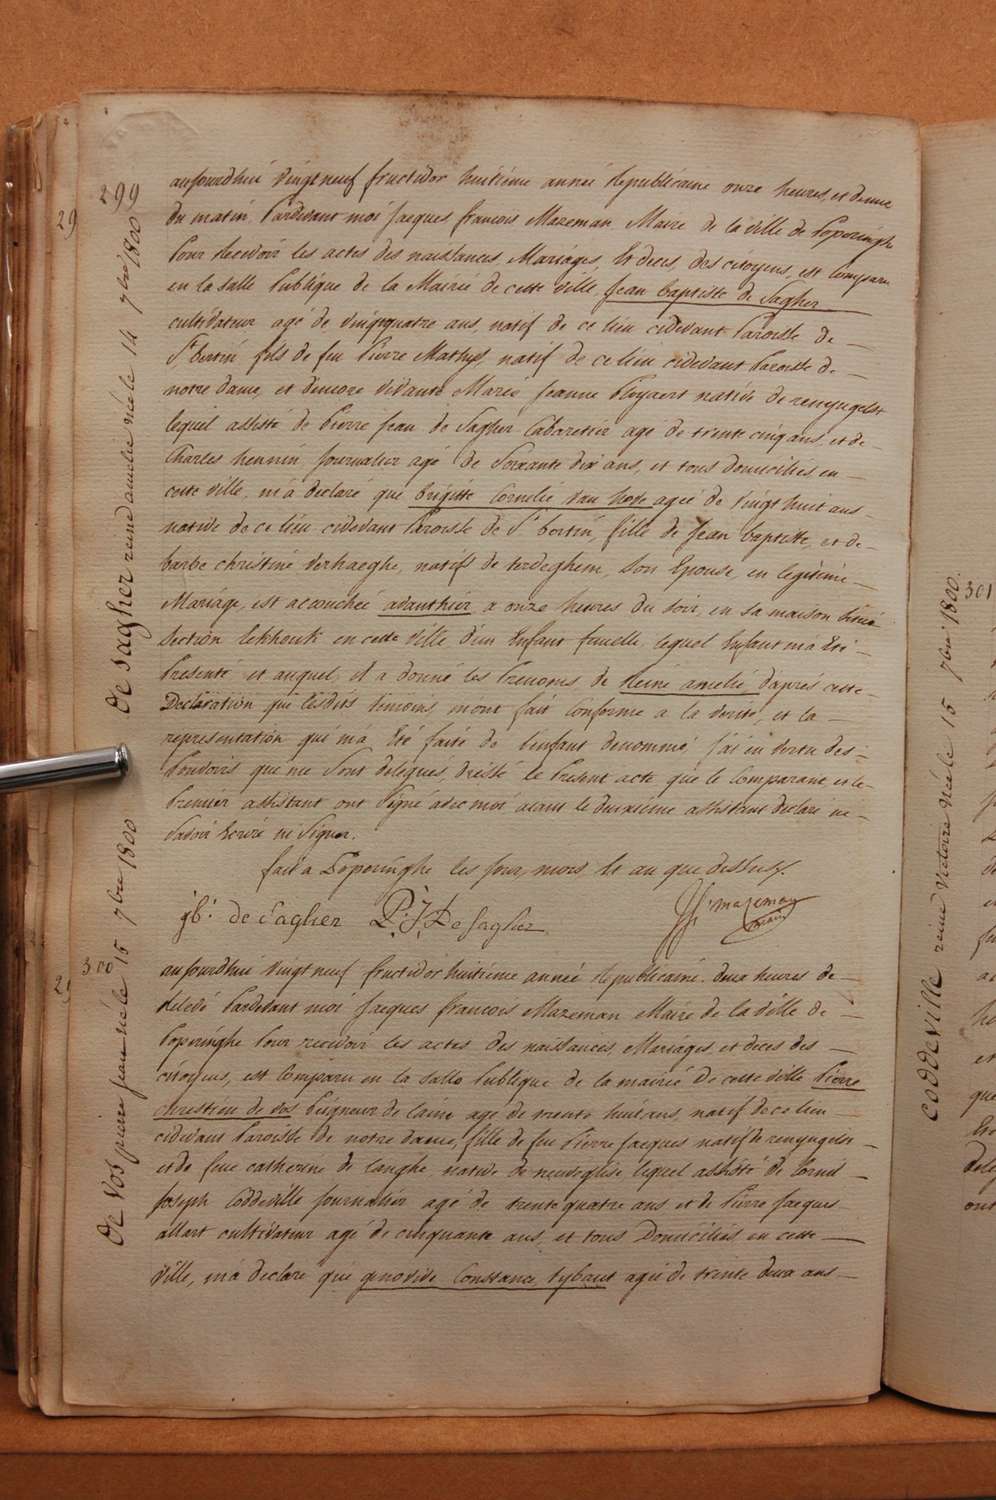 299
de sagher reine amelie née le 14 7bre 1800
aujourdhui vingt neuf fructidor huitième année Republicaine onze heures, et demie
du matin Pardevant moi Jacques francois Mazeman Maire de la ville de Poperinghe
Pour Recevoir les actes des naissances Mariages, Et deces, des citoyens, est comparu
en la salle Publique de la Mairie de cette ville, Jean baptiste de Sagher
cultivateur agé de vingtquatre ans, natif de ce lieu cidevant Paroisse de
St. bertin fils de feu Pierre Mathys, natif de ce lieu cidevant Paroisse de
notre dame, et d'encore vivante Marie Jeanne Ployaert native de renyngelst
lequel assisté de Pierre Jean de Sagher Cabaretier agé de trente cinq ans, et de
Charles hennin Journalier agé de Soixante dix ans, et tous domiciliés en
cette ville, m'a declaré que brigitte Cornelie van hove agée de vingt huit ans
native de ce lieu cidevant Paroisse de St. bertin, fille de Jean baptiste, et de
barbe christine verhaeghe, natifs de terdeghem, son Epouse, en legitime
Mariage, est accouchée avanthier a onze heures du soir, en sa maison située
section Eekhoutt en cette ville d'un Enfant femelle, lequel Enfant m'a Eté
Presenté, et auquel, il a donné les Prenoms de Reine amelie d'après cette
Declaration que lesdits temoins m'ont fait conforme a la verité, et la
representation qui m'a Eté faite de l'enfant denommé j'ai en vertu des
Pouvoirs que me sont delegués, dressé le Present acte que le Comparant, et le
Premier assistant ont Signé avec moi aiant le deuxième assistant declaré ne
Savoir Ecrire ni Signer.
fait a Poperinghe les jour, mois Et an que dessus.
jb. de Sagher P. J. De Sagher J. f. mazeman
maire
300
de Vos pierre jean né le 15 7bre 1800
aujourdhui vingt neuf fructidor huitième année Republicaine deux heures de
relevé Pardevant moi Jacques francois Mazeman Maire de la ville de
Poperinghe Pour recevoir les actes des naissances, Mariages, et deces des
citoyens, est comparu en la salle Publique de la mairie de cette ville Pierre
chrestien de vos Peigneur de laine agé de trente huit ans, natif de ce lieu
cidevant Paroisse de notre dame, fille de feu Pierre Jacques natif de renyngelst
et de feue catherine de Canghe native de neuveglise lequel assisté de Cornil
Joseph Coddeville journalier agé de trente quatre ans et de Pierre Jacques
allart cultivateur agé de cinquante ans, et tous Domiciliés en cette
ville, m'a declaré que genovive Constance tybaut agée de trente deux ans
coddeville reine Victoire née le 15 7bre 1800.
301